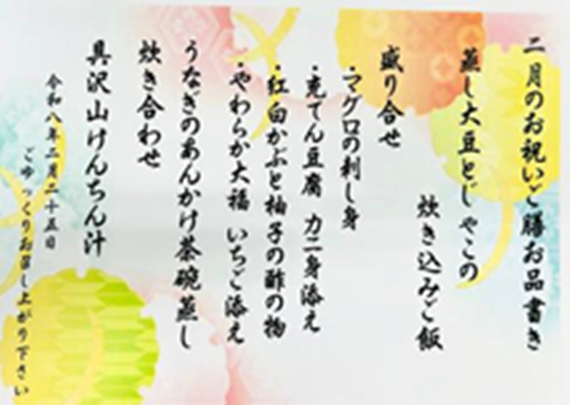 二月のお祝いご膳お品書き
蒸し大豆とじゃこの
炊き込みご飯
盛り合せ
・マグロの刺し身
・充てん豆腐 カニ身添え
・紅白かぶと柚子の酢の物
・やわらか大福 いちご添え
うなぎのあんかけ茶碗蒸し
炊き合わせ
具沢山けんちん汁
令和八年二月二十五日
ごゆっくりお召し上がり下さい